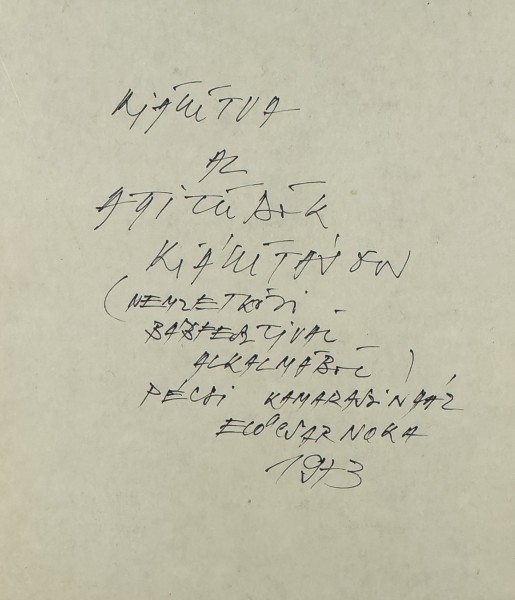 KIÁLLÍTVA
AZ
ATTITŰDÖK
KIÁLLÍTÁSON
(NEMZETKÖZI
BÁBFESZTIVÁL
ALKALMÁBÓL)
PÉCSI KAMARASZINHÁZ
ELŐCSARNOKA
1973